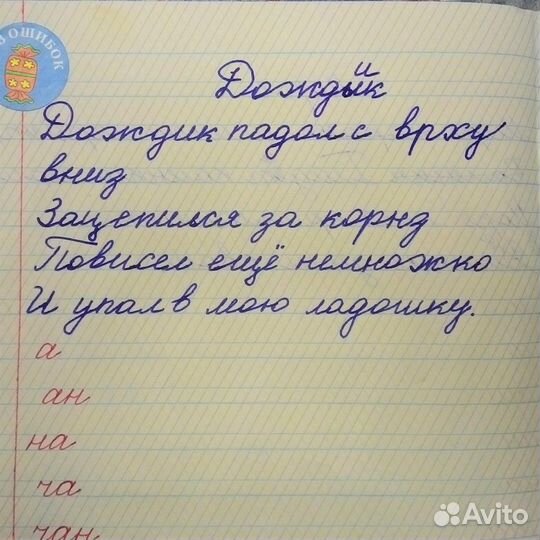 З ОШИБОК
Дождик
Дождик падал с врху
вниз
Зацепился за корнд
Повисел ещё немножко
И упал в мою ладошку.
а
ан
на
ча
чан
Avito